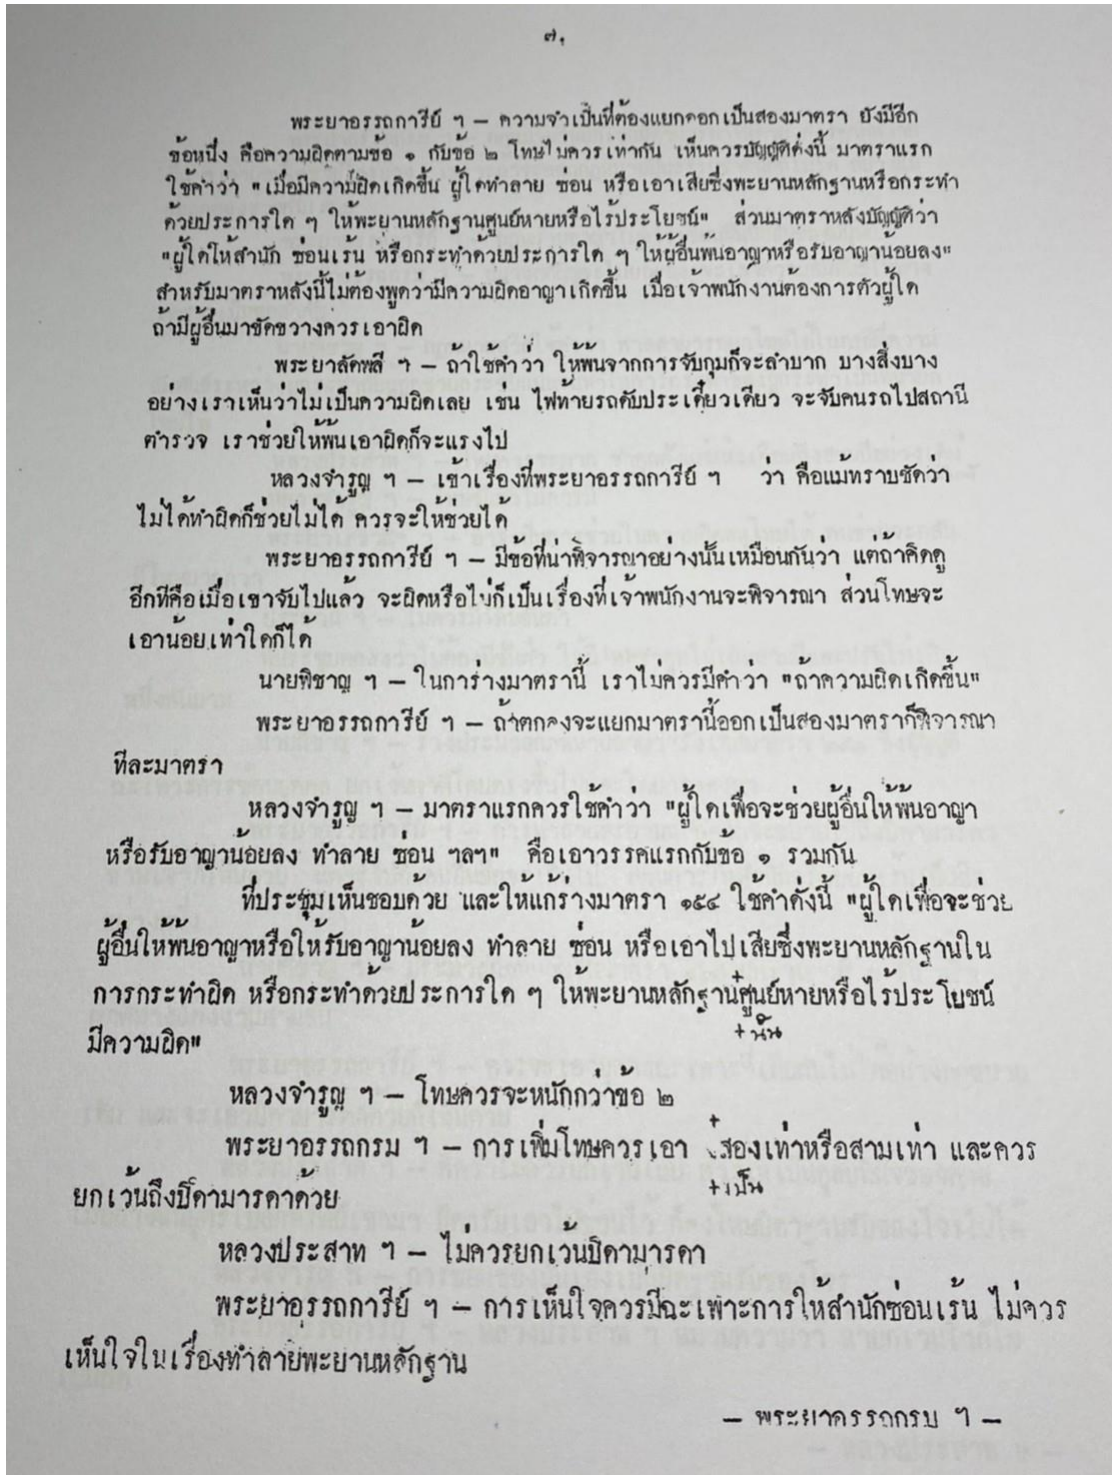 ๗.
พระยาอรรถการีย์ ฯ – ความจำเป็นที่ต้องแยกออกเป็นสองมาตรา ยังมีอีก
ข้อหนึ่ง คือความผิดตามข้อ ๑ กับข้อ ๒ โทษไม่ควรเท่ากัน เห็นควรบัญญัติดั่งนี้ มาตราแรก
ใช้คำว่า "เมื่อมีความผิดเกิดขึ้น ผู้ใดทำลาย ซ่อน หรือเอาเสียซึ่งพะยานหลักฐานหรือกระทำ
ด้วยประการใด ๆ ให้พะยานหลักฐานศูนย์หายหรือไร้ประโยชน์" ส่วนมาตราหลังบัญญัติว่า
"ผู้ใดให้สำนัก ซ่อนเร้น หรือกระทำด้วยประการใด ๆ ให้ผู้อื่นพ้นอาญาหรือรับอาญาน้อยลง"
สำหรับมาตราหลังนี้ไม่ต้องพูดว่ามีความผิดอาญาเกิดขึ้น เมื่อเจ้าพนักงานต้องการตัวผู้ใด
ถ้ามีผู้อื่นมาขัดขวางควรเอาผิด
พระยาลัดพลี ฯ – ถ้าใช้คำว่า ให้พ้นจากการจับกุมก็จะลำบาก บางสิ่งบาง
อย่างเราเห็นว่าไม่เป็นความผิดเลย เช่น ไฟท้ายรถดับประเดี๋ยวเดียว จะจับคนรถไปสถานี
ตำรวจ เราช่วยให้พ้นเอาผิดก็จะแรงไป
หลวงจำรูญ ฯ – เข้าเรื่องที่พระยาอรรถการีย์ ฯ ว่า คือแม้ทราบชัดว่า
ไม่ได้ทำผิดก็ช่วยไม่ได้ ควรจะให้ช่วยได้
พระยาอรรถการีย์ ฯ – มีข้อที่น่าพิจารณาอย่างนั้นเหมือนกันว่า แต่ถ้าคิดดู
อีกทีคือเมื่อเขาจับไปแล้ว จะผิดหรือไม่ก็เป็นเรื่องที่เจ้าพนักงานจะพิจารณา ส่วนโทษจะ
เอาน้อยเท่าใดก็ได้
นายพิชาญ ฯ – ในการ่างมาตรานี้ เราไม่ควรมีคำว่า "ถ้าความผิดเกิดขึ้น"
พระยาอรรถการีย์ ฯ – ถ้าตกลงจะแยกมาตรานี้ออกเป็นสองมาตราก็พิจารณา
ทีละมาตรา
หลวงจำรูญ ฯ – มาตราแรกควรใช้คำว่า "ผู้ใดเพื่อจะช่วยผู้อื่นให้พ้นอาญา
หรือรับอาญาน้อยลง ทำลาย ซ่อน ฯลฯ" คือเอาวรรคแรกกับข้อ ๑ รวมกัน
ที่ประชุมเห็นชอบด้วย และให้แก้ร่างมาตรา ๑๕๔ ใช้คำดั่งนี้ "ผู้ใดเพื่อจะช่วย
ผู้อื่นให้พ้นอาญาหรือให้รับอาญาน้อยลง ทำลาย ซ่อน หรือเอาไปเสียซึ่งพะยานหลักฐานใน
การกระทำผิด หรือกระทำด้วยประการใด ๆ ให้พะยานหลักฐาน+ศูนย์หายหรือไร้ประโยชน์
+นั้น
มีความผิด"
หลวงจำรูญ ฯ – โทษควรจะหนักกว่าข้อ ๒
พระยาอรรถกรม ฯ – การเพิ่มโทษควรเอา +สองเท่าหรือสามเท่า และควร
+เป็น
ยกเว้นถึงบิดามารดาด้วย
หลวงประสาท ฯ – ไม่ควรยกเว้นบิดามารดา
พระยาอรรถการีย์ ฯ – การเห็นใจควรมีฉะเพาะการให้สำนักซ่อนเร้น ไม่ควร
เห็นใจในเรื่องทำลายพะยานหลักฐาน
– พระยาอรรถกรม ฯ –